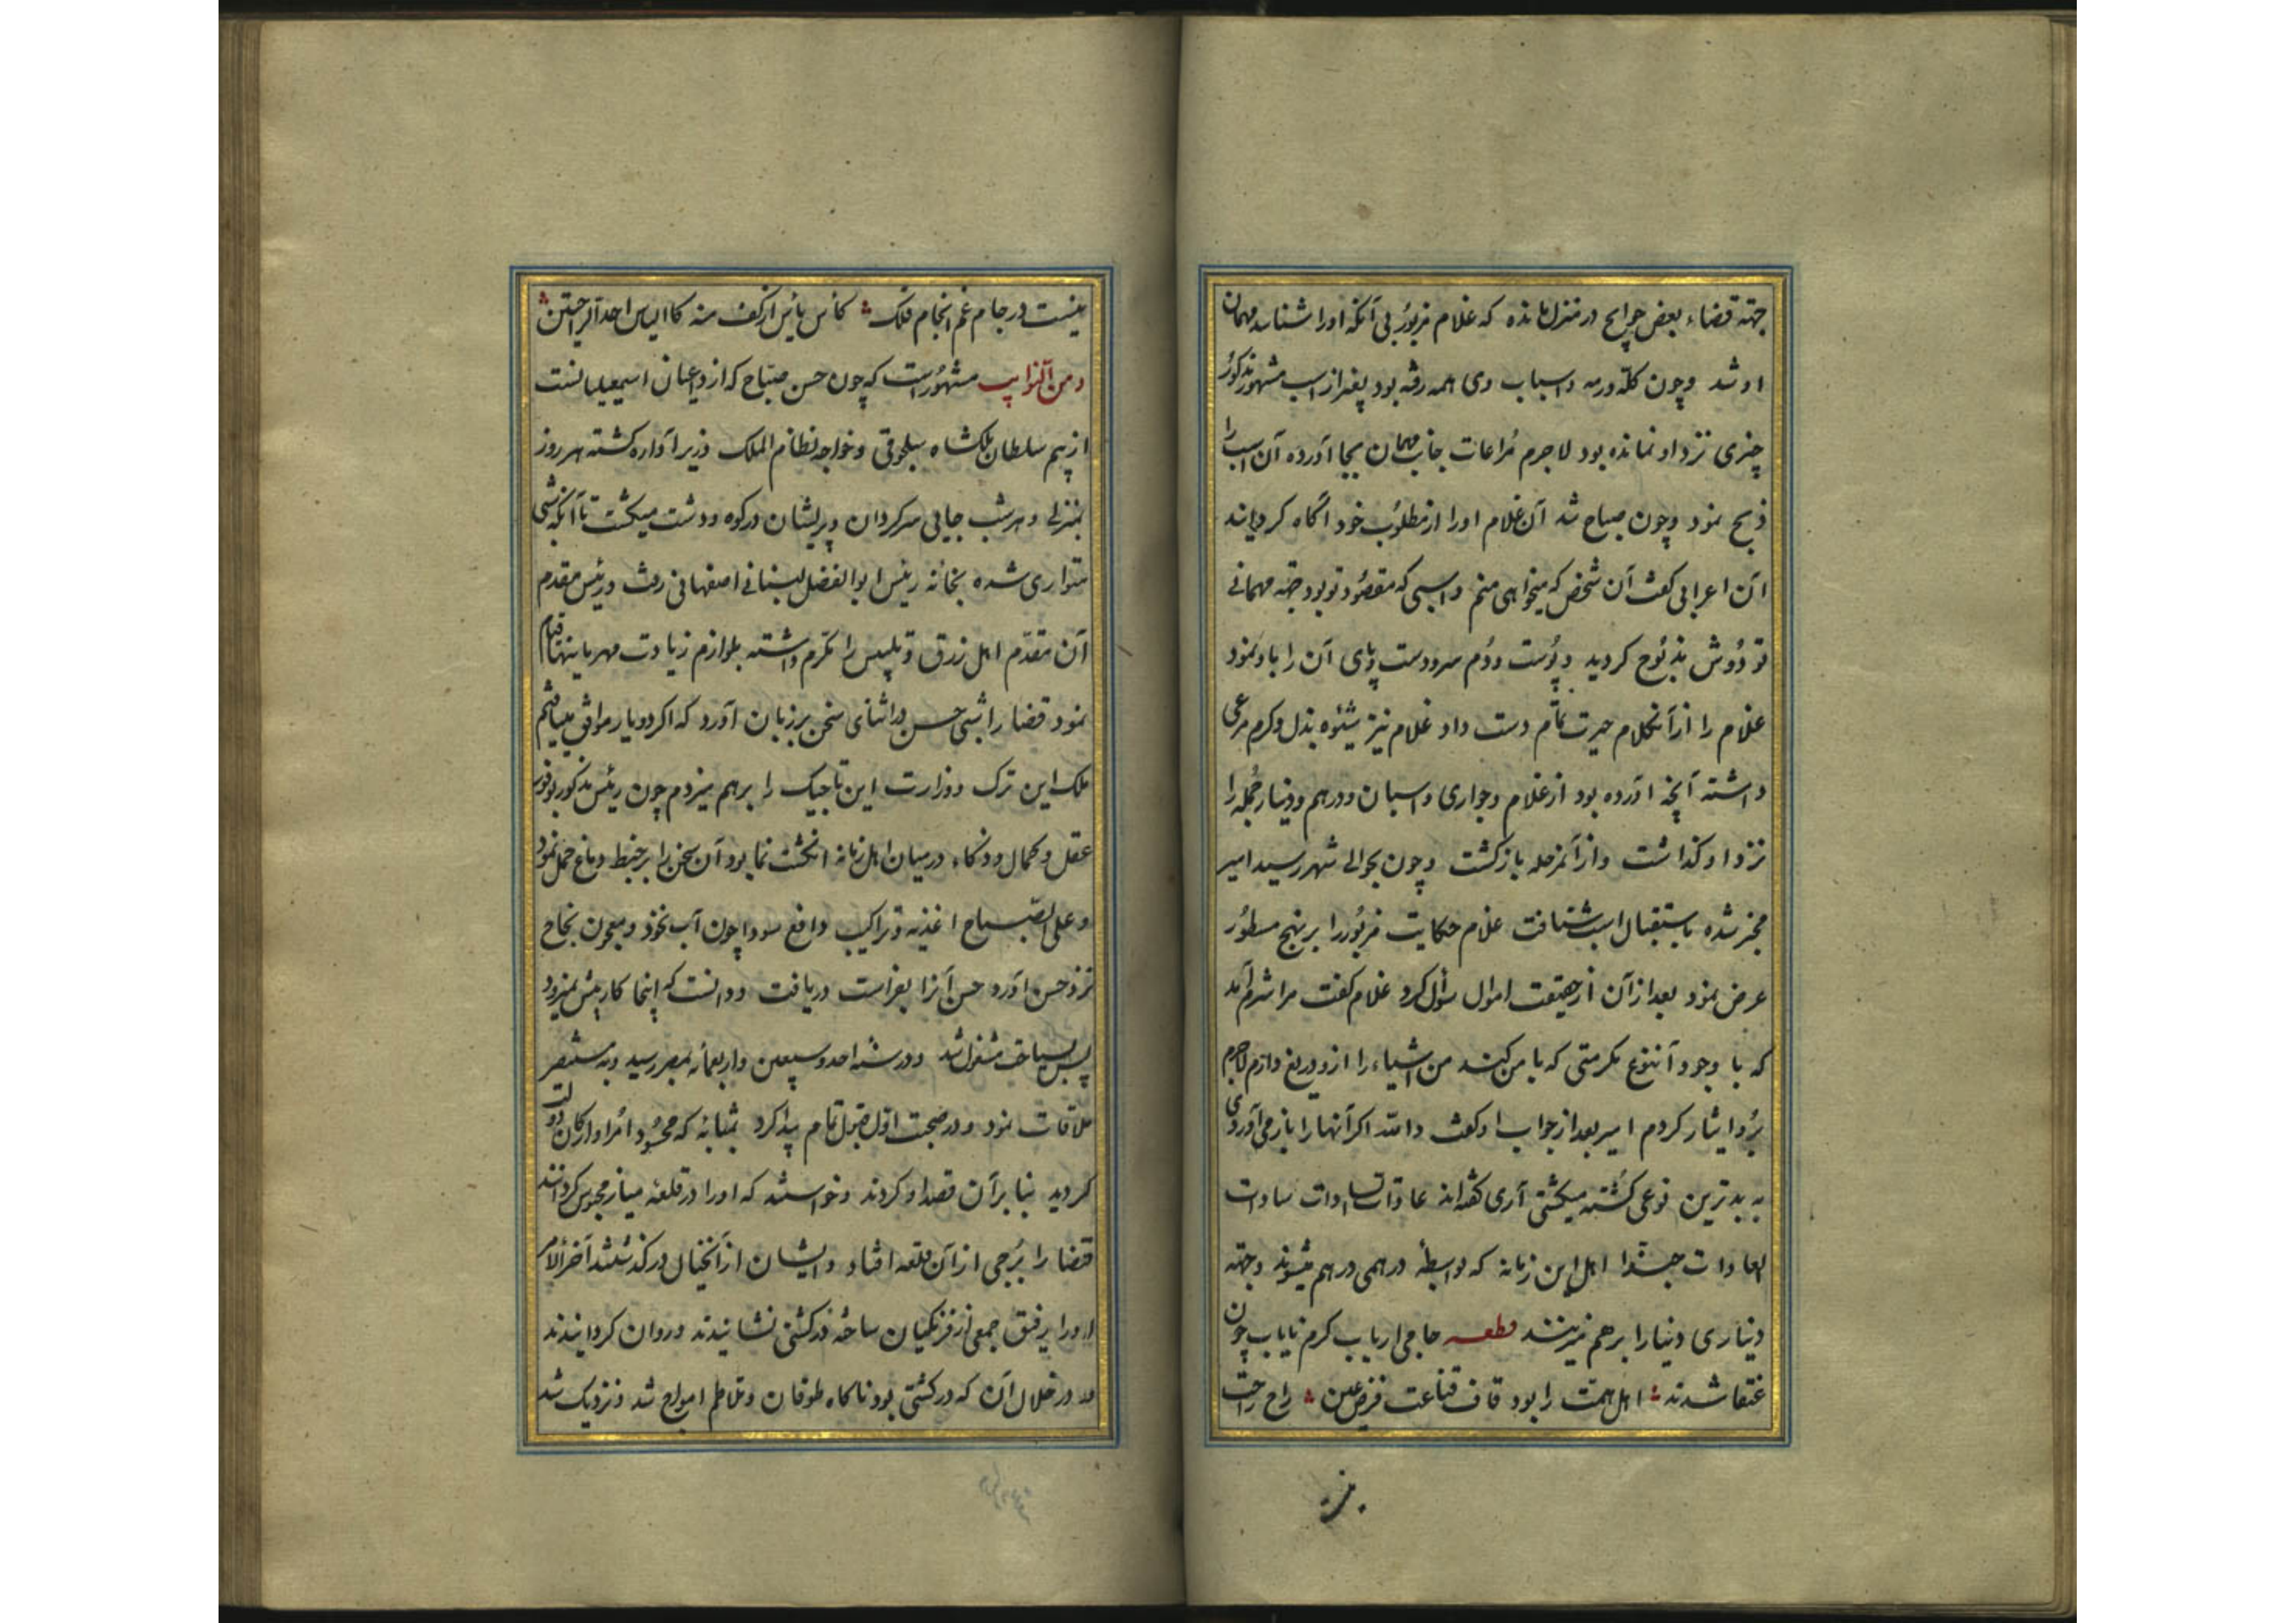 جهته قضاء بعض حوایج در منزل مانده که غلام مزبور بی آنکه اورا شناسد مهمان
او شد وچون کله ورمه واسباب وی همه رفته بود بغیر از اسب مشهور مذکور
چیزی نزد او نمانده بود لاجرم مراعات جانب مهمان بجا آورده آن اسب را
ذبح نمود وچون صباح شد آن غلام اورا از مطلوب خود آگاه کردانید
آن اعرابی کفت آن شخص که میخواهی منم واسبی که مقصود تو بود جهته مهمانی
تو دوش مذبوح کردید وپوست ودم سرودست وپای آن را باو نمود
غلام را از آنکلام حیرت تمام دست داد غلام نیز شیوه بذل وکرم مرعی
داشته آنچه آورده بود از غلام وجواری واسبان ودرهم ودینار جمله را
نزد او کذاشت واز آنمرحله بازکشت وچون بحوالی شهر رسید امیر
مخبر شده باستقبال اسب شتافت غلام حکایت مزبور را بر نهج مسطور
عرض نمود بعد از آن از حقیقت اموال سؤال کرد غلام کفت مرا شرم آمد
که با وجود آننوع مکرمتی که با من کند من اشیاء را از و دریغ دارم لاجرم
برو ایثار کردم امیر بعد از جواب او کفت والله اکر آنها را باز می آوردی
به بدترین نوعی کشته میکشتی آری کفته اند عادات السادات سادات
العادات حبذا اهل این زمانه که بواسطهٔ درهمی درهم میشوند وجهته
دیناری دنیا را برهم میزنند قطعه حاجی ارباب کرم نایاب چون
عنقا شدند اهل همت را بود قاف قناعت فرض عین راح راحت
نیست در جام غم انجام فلک کأس یأس از کف منه کالیاس احد الراحتین
ومن النوایب مشهورست که چون حسن صباح که از داعیان اسمعیلیانست
از بیم سلطان ملکشاه سلجوقی وخواجه نظام الملک وزیر آواره کشته هر روز
بمنزلی وهر شب جایی سرکردان وپریشان در کوه ودشت میکشت تا آنکه شبی
متواری شده بخانه رئیس ابوالفضل لبنانی اصفهانی رفت ورئیس مقدم
آن مقدم اهل زرق وتلبیس را مکرم داشته بلوازم زیادت مهربانیها قیام
نمود قضا را شبی حسن در اثنای سخن برزبان آورد که اکر دو یار موافق میافتم
ملک این ترک ووزارت این تاجیک را برهم میزدم چون رئیس مذکور بوفور
عقل وکمال وذکاء درمیان اهل زمانه انکشت نما بود آن سخن را بر خبط دماغ حمل نمود
وعلی الصباح اغذیه وتراکیب دافع سودا چون آب نخود ومعجون نجاح
نزد حسن آورد حسن آنرا بفراست دریافت ودانست که اینجا کار پیش نمیرود
پس بسیاحت مشغول شد ودر سنه احد وسبعین واربعمائه بمصر رسید وبه مستنصر
ملاقات نمود ودر صحبت اول قبول تمام پیدا کرد بمثابه که محسود امرا وارکان دولت
کردید بنا بر آن قصد او کردند وخواستند که اورا در قلعه میناز محبوس کردانند
قضا را برجی از آن قلعه افتاد وایشان از آنخیال در کذشتند آخر الامر
اورا برفق جمعی از فرنکیان ساخته در کشتی نشانیدند وروان کردانیدند
در خلال آن که در کشتی بود ناکاه طوفان وتلاطم امواج شد ونزدیک شد